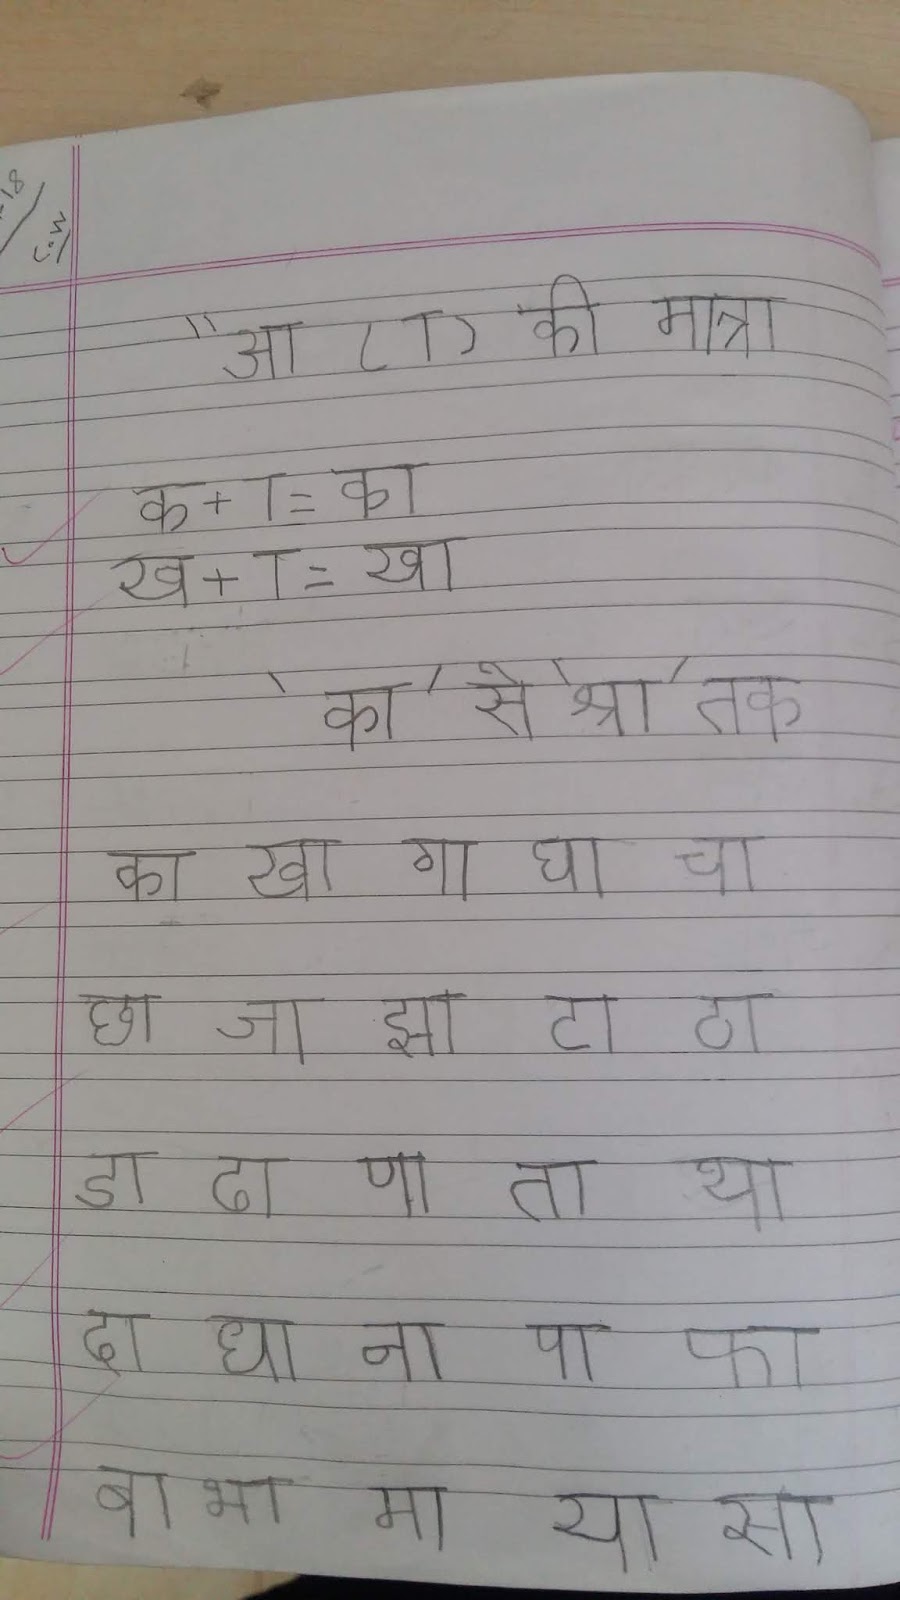 "आ (ा) की मात्रा
क + ा = का
ख + ा = खा
'का' से 'श्रा' तक
का खा गा घा चा
छा जा झा टा ठा
डा ढा णा ता था
दा धा ना पा फा
बा भा मा या सा